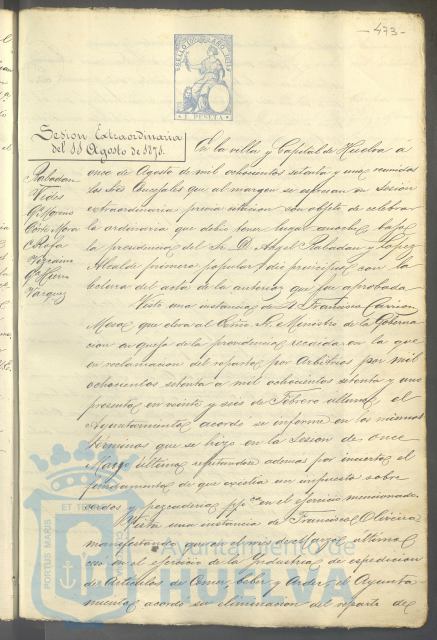 -473-
SELLO 10º AÑO 1871
1 PESETA
Sesion Extraordinaria
del 11 Agosto de 1871.
En la villa y Capital de Huelva á
once de Agosto de mil ochocientos setenta y uno reunidos
los Sres Concejales que al margen se espresan en Sesion
extraordinaria previa citacion con objeto de celebrar
la ordinaria que debió tener lugar anoche, bajo
la presidencia del Sr. D. Angel Rabadan y Lopez
Alcalde primero popular, dió principio con la
lectura del acta de la anterior que fue aprobada
Rabadan
Vides
G. Moreno
Corte Mora
Rofa
Vizcaino
Vazquez
Vista una instancia de Francisco Carrion
Mesa, que eleva al Exmo Sr. Ministro de la Goberna
cion en queja de la providencia recaida en la que
en reclamacion del reparto por Arbitrios por mil
ochocientos setenta á mil ochocientos setenta y uno
presentó en veinte y seis de Febrero ultimo, el
Ayuntamiento acordó se informe en los mismos
terminos que se hizo en la Sesion de once
Marzo ultimo, refutandose ademas por incierto el
fundamento de que existia un impuesto sobre
cerdos y pescaderias en el servicio mencionado
Vista una instancia de Francisco Oliveira
manifestando que en el mes de Marzo ultimo
cesó en el servicio de la Industria de espedicion
de Articulos de Comer, beber y Arder, el Ayunta
miento acordó su eliminacion del reparto de
PORTUS MARIS ET TERRE
Ayuntamiento de
HUELVA